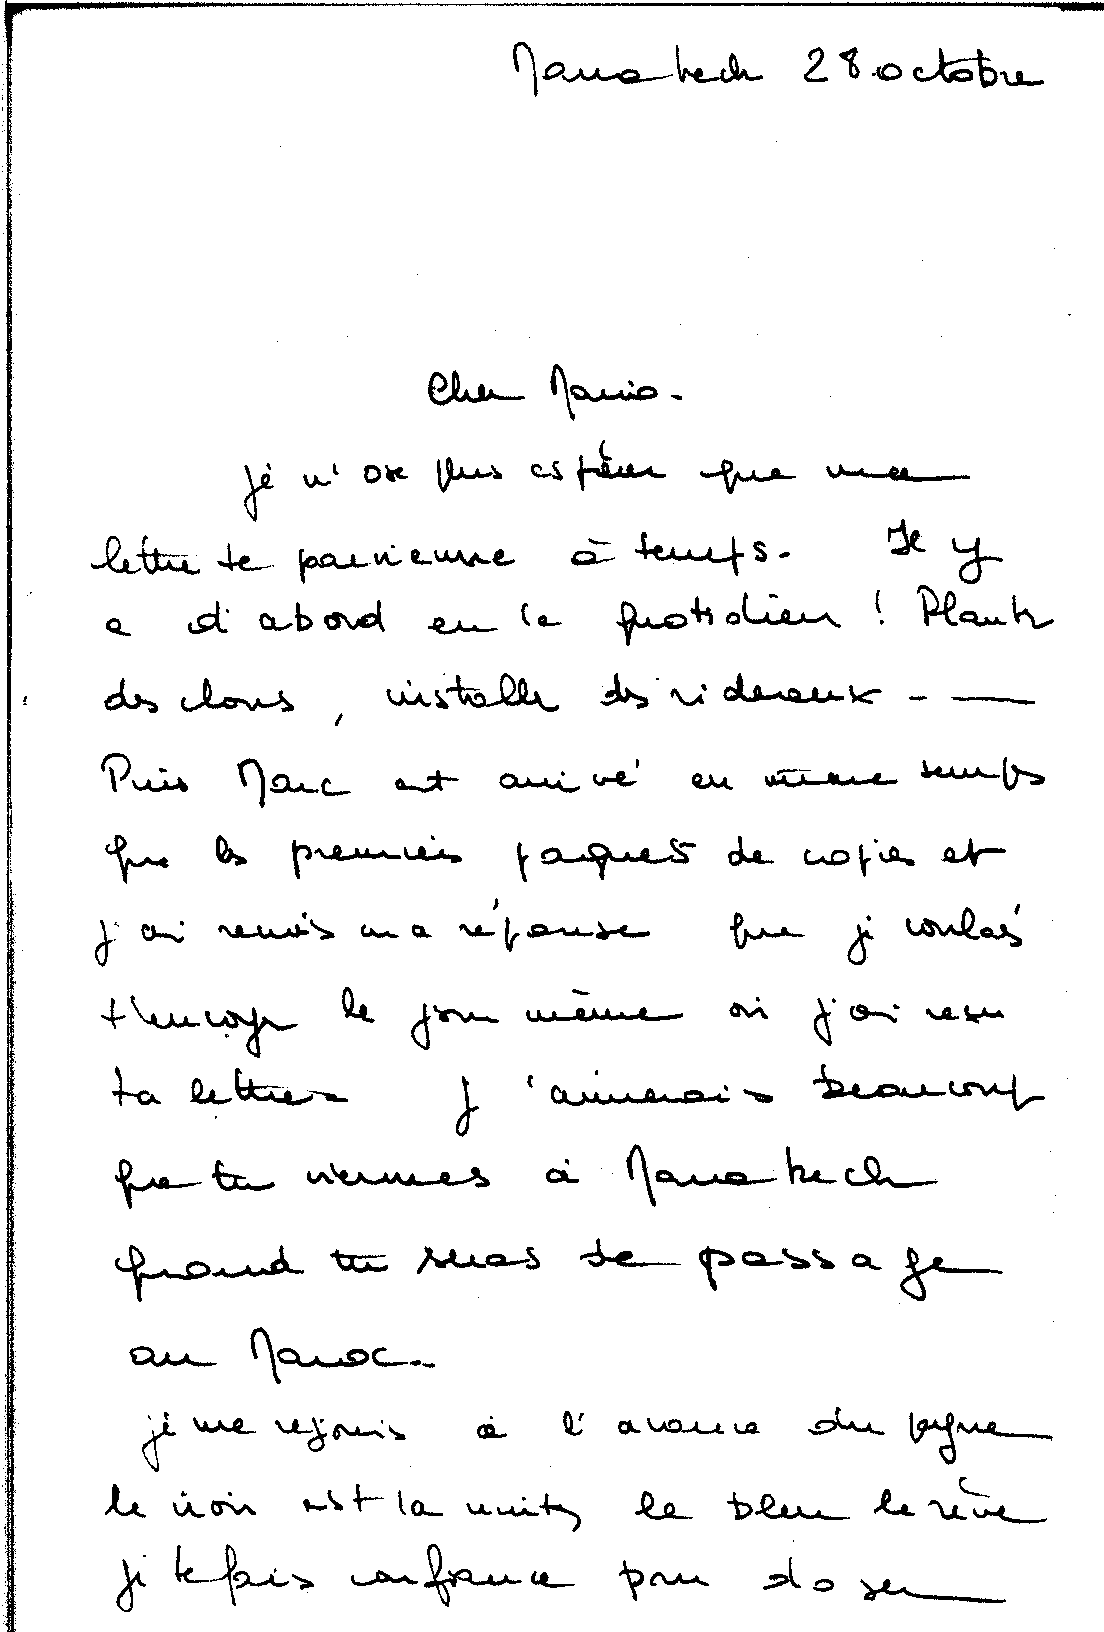 Marrakech 28 octobre
Cher Mario.
Je n'ose plus espérer que ma
lettre te parvienne à temps. Il y
a d'abord eu le quotidien ! Planter
des clous, installer des rideaux - —
Puis Marc est arrivé en même temps
que les premiers paquets de copies et
j'ai remis ma réponse que je voulais
t'envoyer le jour même où j'ai reçu
ta lettre. J'aimerais beaucoup
que tu viennes à Marrakech
quand tu seras de passage
au Maroc.
je me rejouis à l'avance du pagne
le noir est la nuit, le bleu le rêve
je te fais confiance pour doser